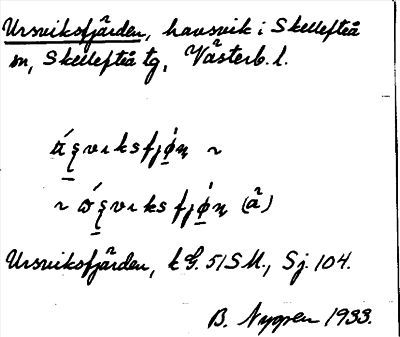 Ursviksfjärden, havsvik i Skellefteå
sn, Skellefteå tg, Västerb. l.
ʉ́ʂvɩksfjǿɳ ~
~ ɷ́ʂvɩksfjǿɳ (ä)
Ursviksfjärden, k G. 51 SM., Sj. 104.
B. Nygren 1933.